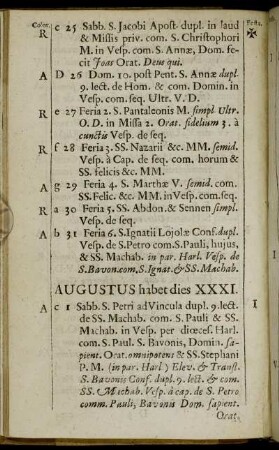 Color. Festa.
R c 25 Sabb. S. Jacobi Apost. dupl. in laud
& Missis priv. com. S. Christophori
M. in Vesp. com. S. Annæ, Dom. fe-
cit Joas Orat. Deus qui.
A D 26 Dom. 10. post Pent. S. Annæ dupl.
9. lect. de Hom. & com. Domin. in
Vesp. com. seq. Ultr. V. D.
R e 27 Feria 2. S. Pantaleonis M. simpl. Ultr.
O. D. in Missa 2. Orat. fidelium 3. à
cunctis Vesp. de seq.
R f 28 Feria 3. SS. Nazarii &c. MM. semid.
Vesp. à Cap. de seq. com. horum &
SS. felicis &c. MM.
A g 29 Feria 4. S. Marthæ V. semid. com.
SS. Felic. &c. MM. in Vesp. com. seq.
R a 30 Feria 5. SS. Abdon. & Sennen simpl.
Vesp. de seq.
A b 31 Feria 6. S. Ignatii Lojolæ Conf. dupl.
Vesp. de S. Petro com. S. Pauli, hujus,
& SS. Machab. in par. Harl. Vesp. de
S. Bavon. com. S. Ignat. & SS. Machab.
AUGUSTUS habet dies XXXI.
A c 1 Sabb. S. Petri ad Vincula dupl. 9. lect.
de SS. Machab. com. S. Pauli & SS.
Machab. in Vesp. per diœcef. Harl.
com. S. Paul. S. Bavonis, Domin. sa-
pient. Orat. omnipotens & SS. Stephani
P. M. (in par. Harl) Elev. & Transl.
S. Bavonis Conf. dupl. 9. lect. & com.
SS. Machab. Vesp. à cap. de S. Petro
comm. Pauli, Bavonis Dom. sapient.
Orat.